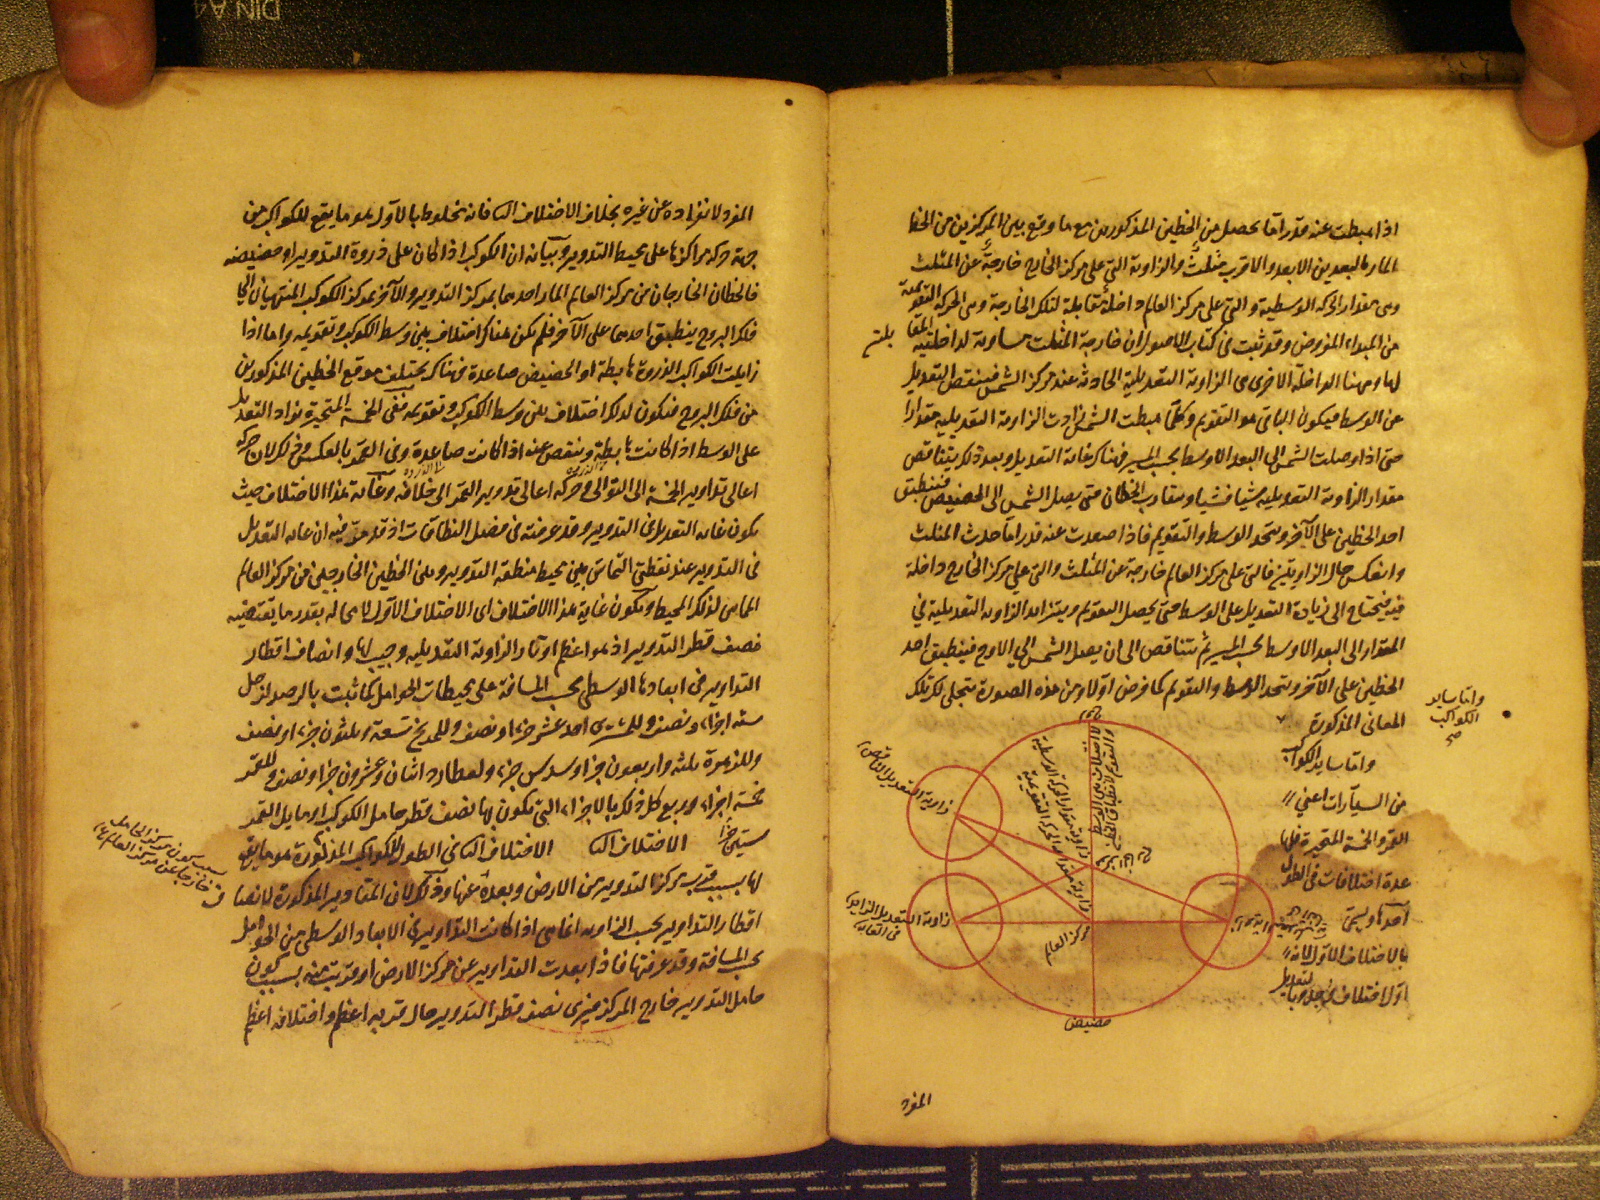 اذا هبطت عنه قدرا ما يحصل من الخطين المذكورين مع ما وقع بين المركزين من الخط
المار بالبعدين الابعد والاقرب مثلث والزاوية التي على مركز الخارج خارجة عن المثلث
وهي مقدار الحركة الوسطية والتي على مركز العالم داخلة مقابلة لتلك الخارجة وهي الحركة التقويمية
من المبداء المفروض وقد ثبت في كتاب الاصول ان خارجة المثلث مساوية لداخلتيه
لها وههنا الداخلة الاخرى هي الزاوية التعديلية الحادثة عند مركز الشمس فينقص التعديل
عن الوسط فيكون الباقي هو التقويم وكلما هبطت الشمس زادت الزاوية التعديلية مقدارا
حتى اذا وصلت الشمس الى البعد الاوسط بحسب المسير فهناك غاية التعديل وبعد ذلك يتناقص
مقدار الزاوية التعديلية شيئا فشيئا ويتقارب الخطان حتى يصل الشمس الى الحضيض فينطبق
احد الخطين على الآخر ويتحد الوسط والتقويم فاذا صعدت عنه قدرا ما حدث المثلث
وانعكس حال الزاويتين فالتي على مركز العالم خارجة عن المثلث والتي على مركز الخارج داخلة
فيه فيحتاج الى زيادة التعديل على الوسط حتى يحصل التقويم ويتزايد الزاوية التعديلية في
المقدار الى البعد الاوسط بحسب المسير ثم تتناقص الى ان يصل الشمس الى الاوج فينطبق احد
الخطين على الآخر ويتحد الوسط والتقويم كما فرض اولا ومن هذه الصورة يتجلى لك تلك
المعاني المذكورة
واما ساير الكواكب
من السيارات اعني
القمر والخمسة المتحيرة فلها
عدة اختلافات في الطول
احدها ويسمى
بالاختلاف الاول لانه
اول اختلاف
واما ساير
الكواكب
صح
اوج
زاوية التعديل الناقص
زاوية التعديل الزايد
في الغاية
مركز العالم
حضيض
المفرد
المفرد لانفراده عن غيره بخلاف الاختلاف الثا فانه مخلوط بالاول هو ما يقع للكواكب من
جهة حركة مراكزها على محيط التدوير وبيانه ان الكوكب اذا كان على ذروة التدوير او حضيضه
فالخطان الخارجان من مركز العالم المار احدهما بمركز التدوير والآخر بمركز الكوكب المنتهيان الى
فلك البروج ينطبق احدهما على الآخر فلم يكن هناك اختلاف بين وسط الكوكب وتقويمه واما اذا
زايلت الكواكب الذروة هابطة او الحضيض صاعدة فهناك يختلف موقع الخطين المذكورين
من فلك البروج فيكون لذلك اختلاف بين وسط الكوكب وتقويمه ففي الخمسة المتحيرة يزاد التعديل
على الوسط اذا كانت هابطة وينقص عنه اذا كانت صاعدة وفي القمر بالعكس وذلك لان حركة
اعالي تداوير الخمسة الى التوالي وحركة اعالي تدوير القمر الى خلافه وغاية هذا الاختلاف حيث
يكون غاية التعديل في التدوير وقد عرفته في فصل النطاقات اذ قد عرف فيه ان غاية التعديل
في التدوير عند نقطتي التماس بين محيط منطقة التدوير وبين الخطين الخارجين من مركز العالم
المماسين لذلك المحيط ويكون غاية هذا الاختلاف اي الاختلاف الاول لا محالة بقدر ما يقتضيه
نصف قطر التدوير اذ هو اعظم اوتار الزاوية التعديلية وجيب لها وانصاف اقطار
التداوير في ابعادها الوسطى بحسب المسافة على محيطات الحوامل كما ثبت بالرصد لزحل
ستة اجزاء ونصف وللمشتري احد عشر جزءا ونصف وللمريخ تسعة وثلثون جزءا ونصف
وللزهرة ثلثة واربعون جزءا وسدس جزء ولعطارد اثنان وعشرون جزءا ونصف وللقمر
خمسة اجزاء وربع كل ذلك بالاجزاء التي يكون بها نصف قطر حامل الكوكب او مايل القمر
ستين جزءا الاختلاف الثا الاختلاف الثاني الطولي للكواكب المذكورة هو ما يقع
لها بسبب قرب مركز التدوير من الارض وبعده عنها وذلك لان المقادير المذكورة لانصاف
اقطار التداوير بحسب الزاوية انما هي اذا كانت التداوير في الابعاد الوسطى من الحوامل
بحسب المسافة وقد عرفتها فاذا بعدت التداوير عن مركز الارض او قربت منه بسبب كون
حامل التدوير خارج المركز فيرى نصف قطر التدوير حال قربه اعظم واختلافه اعظم
بسبب كون مركز الحامل
خارجا عن مركز العالم